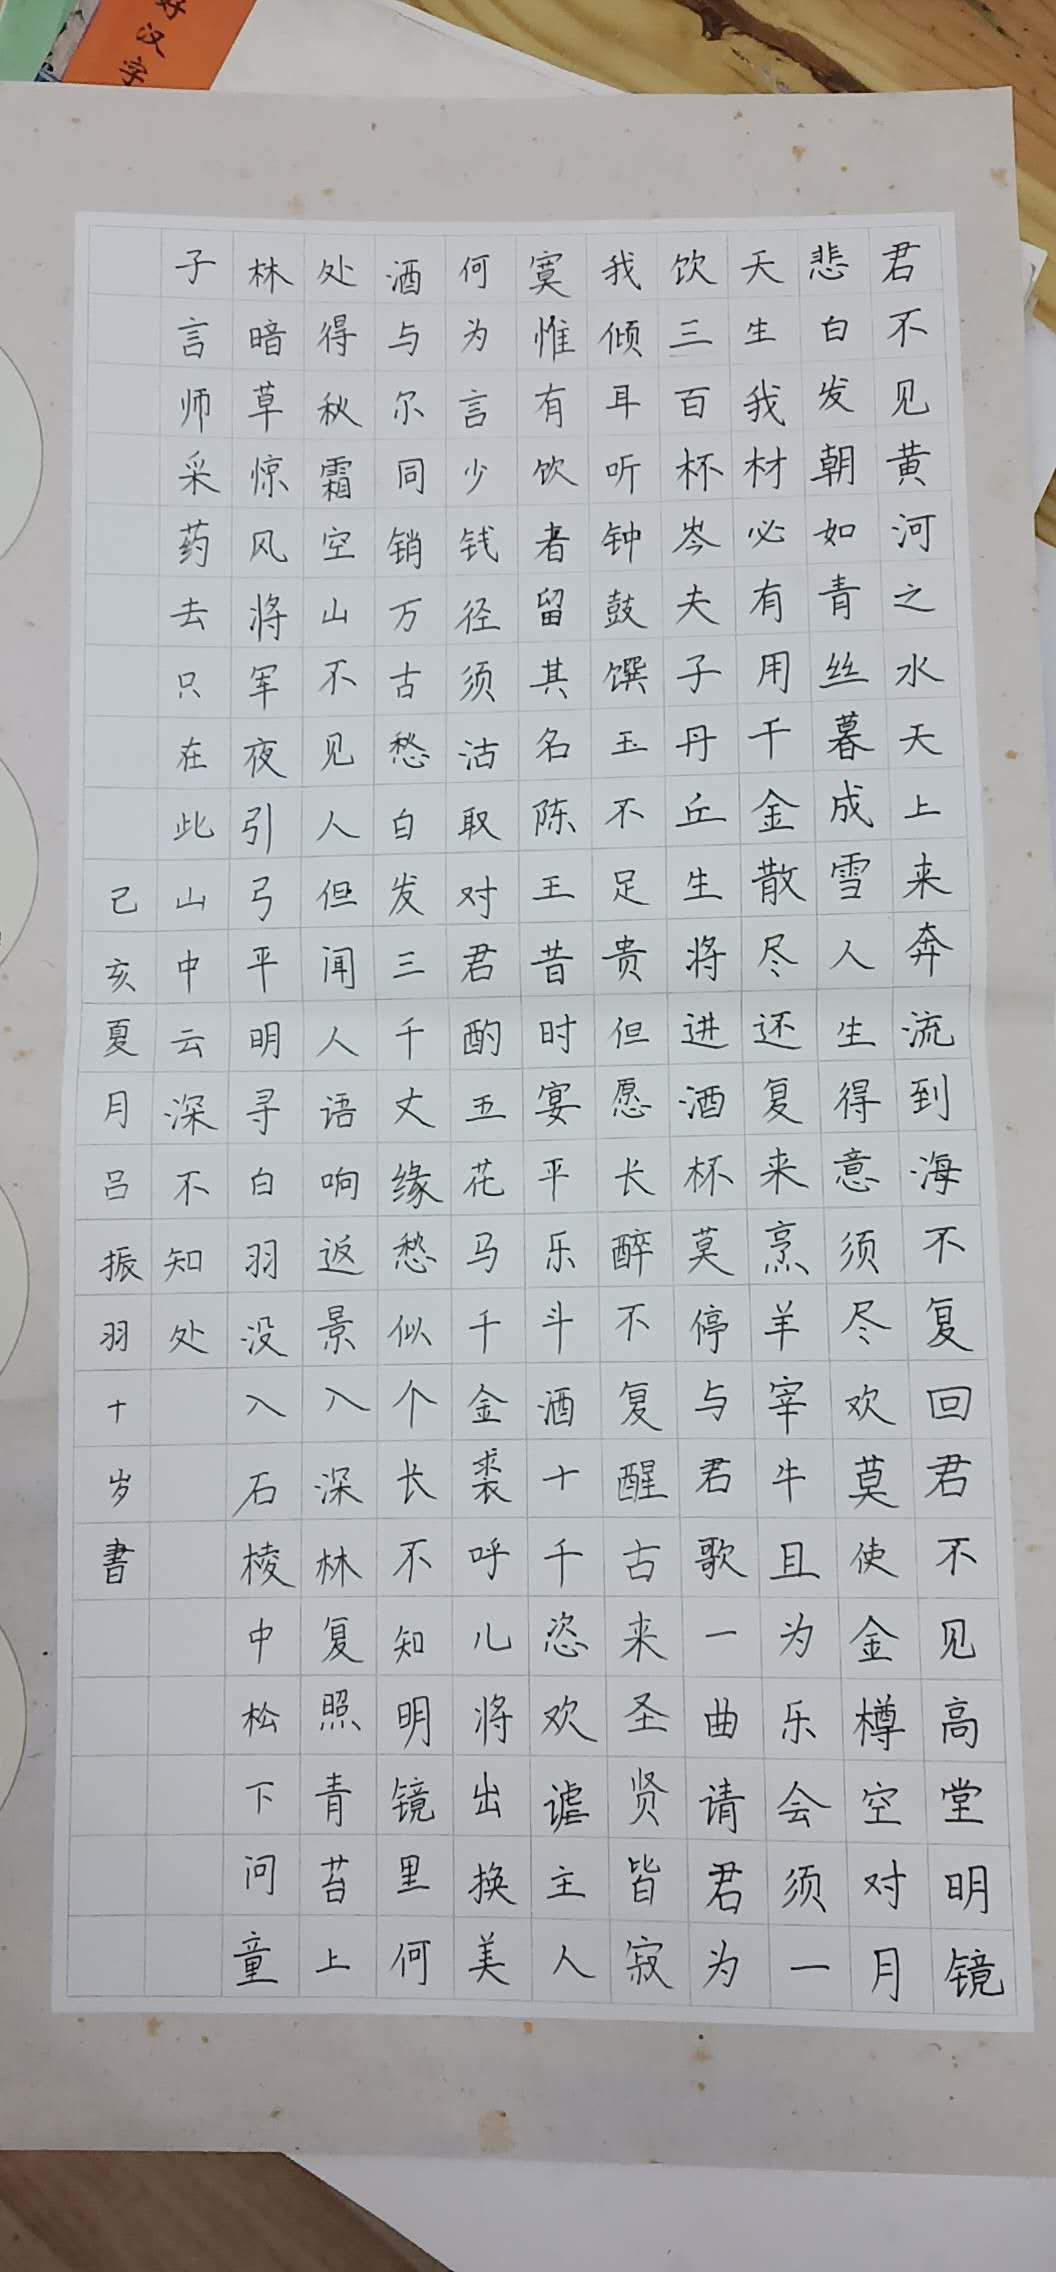 好汉字
君不见黄河之水天上来奔流到海不复回君不见高堂明镜
悲白发朝如青丝暮成雪人生得意须尽欢莫使金樽空对月
天生我材必有用千金散尽还复来烹羊宰牛且为乐会须一
饮三百杯岑夫子丹丘生将进酒杯莫停与君歌一曲请君为
我倾耳听钟鼓馔玉不足贵但愿长醉不复醒古来圣贤皆寂
寞惟有饮者留其名陈王昔时宴平乐斗酒十千恣欢谑主人
何为言少钱径须沽取对君酌五花马千金裘呼儿将出换美
酒与尔同销万古愁白发三千丈缘愁似个长不知明镜里何
处得秋霜空山不见人但闻人语响返景入深林复照青苔上
林暗草惊风将军夜引弓平明寻白羽没入石棱中松下问童
子言师采药去只在此山中云深不知处
己亥夏月吕振羽十岁書